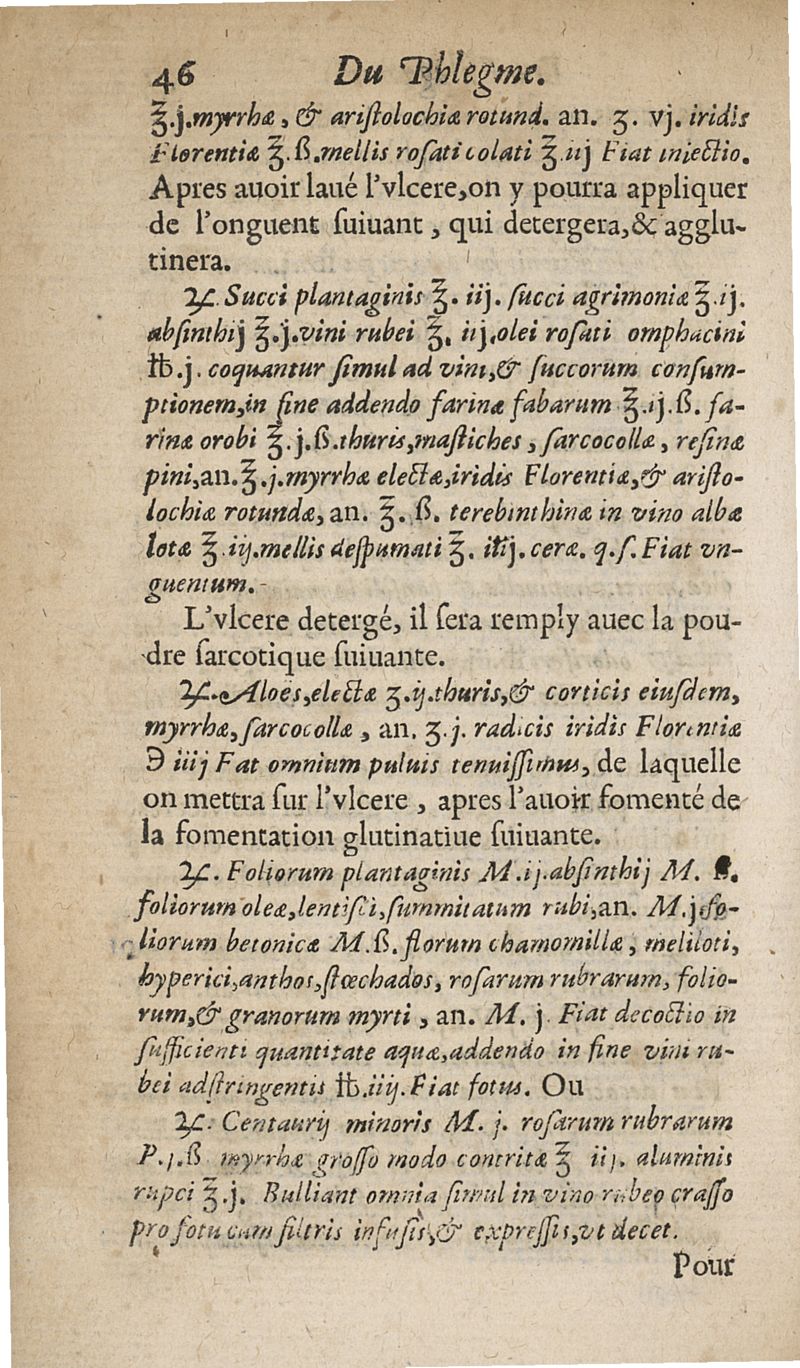 46 Du Phlegme.
℥.j.myrrhæ, & ariſtolochiæ rotund. an. ʒ. vj. iridis
Florentiæ ℥.ß.mellis roſati colati ℥.iij Fiat iniectio.
Apres auoir laué l'vlcere,on y pourra appliquer
de l'onguent ſuiuant, qui detergera,& agglu-
tinera.
♃. Succi plantaginis ℥. iij. ſucci agrimoniæ ℥.ij.
abſinthij ℥.j.vini rubei ℥. iij.olei roſati omphacini
℔.j. coquantur ſimul ad vini,& ſuccorum conſum-
ptionem,in fine addendo farinæ fabarum ℥.ij.ß. fa-
rinæ orobi ℥.j.ß.thuris,maſtiches, ſarcocollæ, reſinæ
pini,an.℥.j.myrrhæ electæ,iridis Florentiæ,& ariſto-
lochiæ rotundæ, an. ℥. ß. terebinthinæ in vino albæ
lotæ ℥.iij.mellis deſpumati ℥. iiij. ceræ. q.ſ. Fiat vn-
guentum.
L'vlcere detergé, il ſera remply auec la pou-
dre ſarcotique ſuiuante.
♃. Aloës,electæ ʒ.ij.thuris,& corticis eiuſdem,
myrrhæ,ſarcocollæ, an. ʒ.j. radicis iridis Florentiæ
℈ iiij Fat omnium puluis tenuiſſimus, de laquelle
on mettra ſur l'vlcere, apres l'auoir fomenté de
la fomentation glutinatiue ſuiuante.
♃. Foliorum plantaginis M.ij.abſinthij M. ß.
foliorum oleæ,lentiſci,ſummitatum rubi,an. M.j.fo-
liorum betonicæ M.ß. florum chamomillæ, meliloti,
hyperici,anthos,ſtœchados, roſarum rubrarum, folio-
rum,& granorum myrti, an. M. j. Fiat decoctio in
ſufficienti quantitate aquæ,addendo in fine vini ru-
bei adſtringentis ℔.iiij.Fiat fotus. Ou
♃. Centaurij minoris M. j. roſarum rubrarum
P.j.ß myrrhæ groſſo modo contritæ ℥ iij. aluminis
rupci ℥.j. Bulliant omnia ſimul in vino rubeo craſſo
pro fotu cum filtris infuſis,& expreſſis,vt decet.
Pour